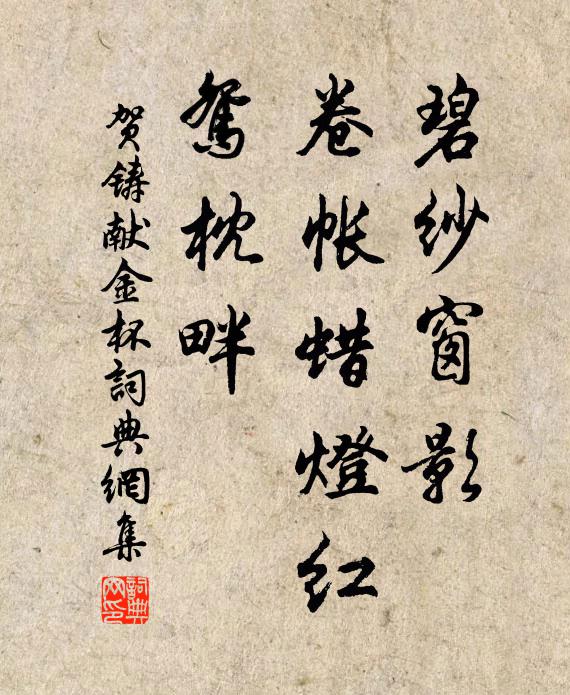 碧纱窗影
卷帐蜡燈红
鸳枕畔
贺鋳献金杯詞典網集